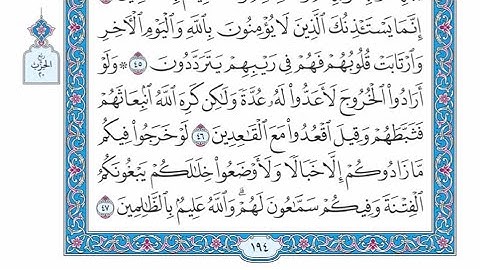 إِنَّمَا يَسْتَـْٔذِنُكَ ٱلَّذِينَ لَا يُؤْمِنُونَ بِٱللَّهِ وَٱلْيَوْمِ ٱلْـَٔاخِرِ
وَٱرْتَابَتْ قُلُوبُهُمْ فَهُمْ فِى رَيْبِهِمْ يَتَرَدَّدُونَ ٤٥ ۞ وَلَوْ
أَرَادُوا۟ ٱلْخُرُوجَ لَأَعَدُّوا۟ لَهُۥ عُدَّةً وَلَـٰكِن كَرِهَ ٱللَّهُ ٱنۢبِعَاثَهُمْ
فَثَبَّطَهُمْ وَقِيلَ ٱقْعُدُوا۟ مَعَ ٱلْقَـٰعِدِينَ ٤٦ لَوْ خَرَجُوا۟ فِيكُم
مَّا زَادُوكُمْ إِلَّا خَبَالًا وَلَأَوْضَعُوا۟ خِلَـٰلَكُمْ يَبْغُونَكُمُ
ٱلْفِتْنَةَ وَفِيكُمْ سَمَّـٰعُونَ لَهُمْ ۗ وَٱللَّهُ عَلِيمٌۢ بِٱلظَّـٰلِمِينَ ٤٧
١٩٤
ربع
الحزب
٢٠